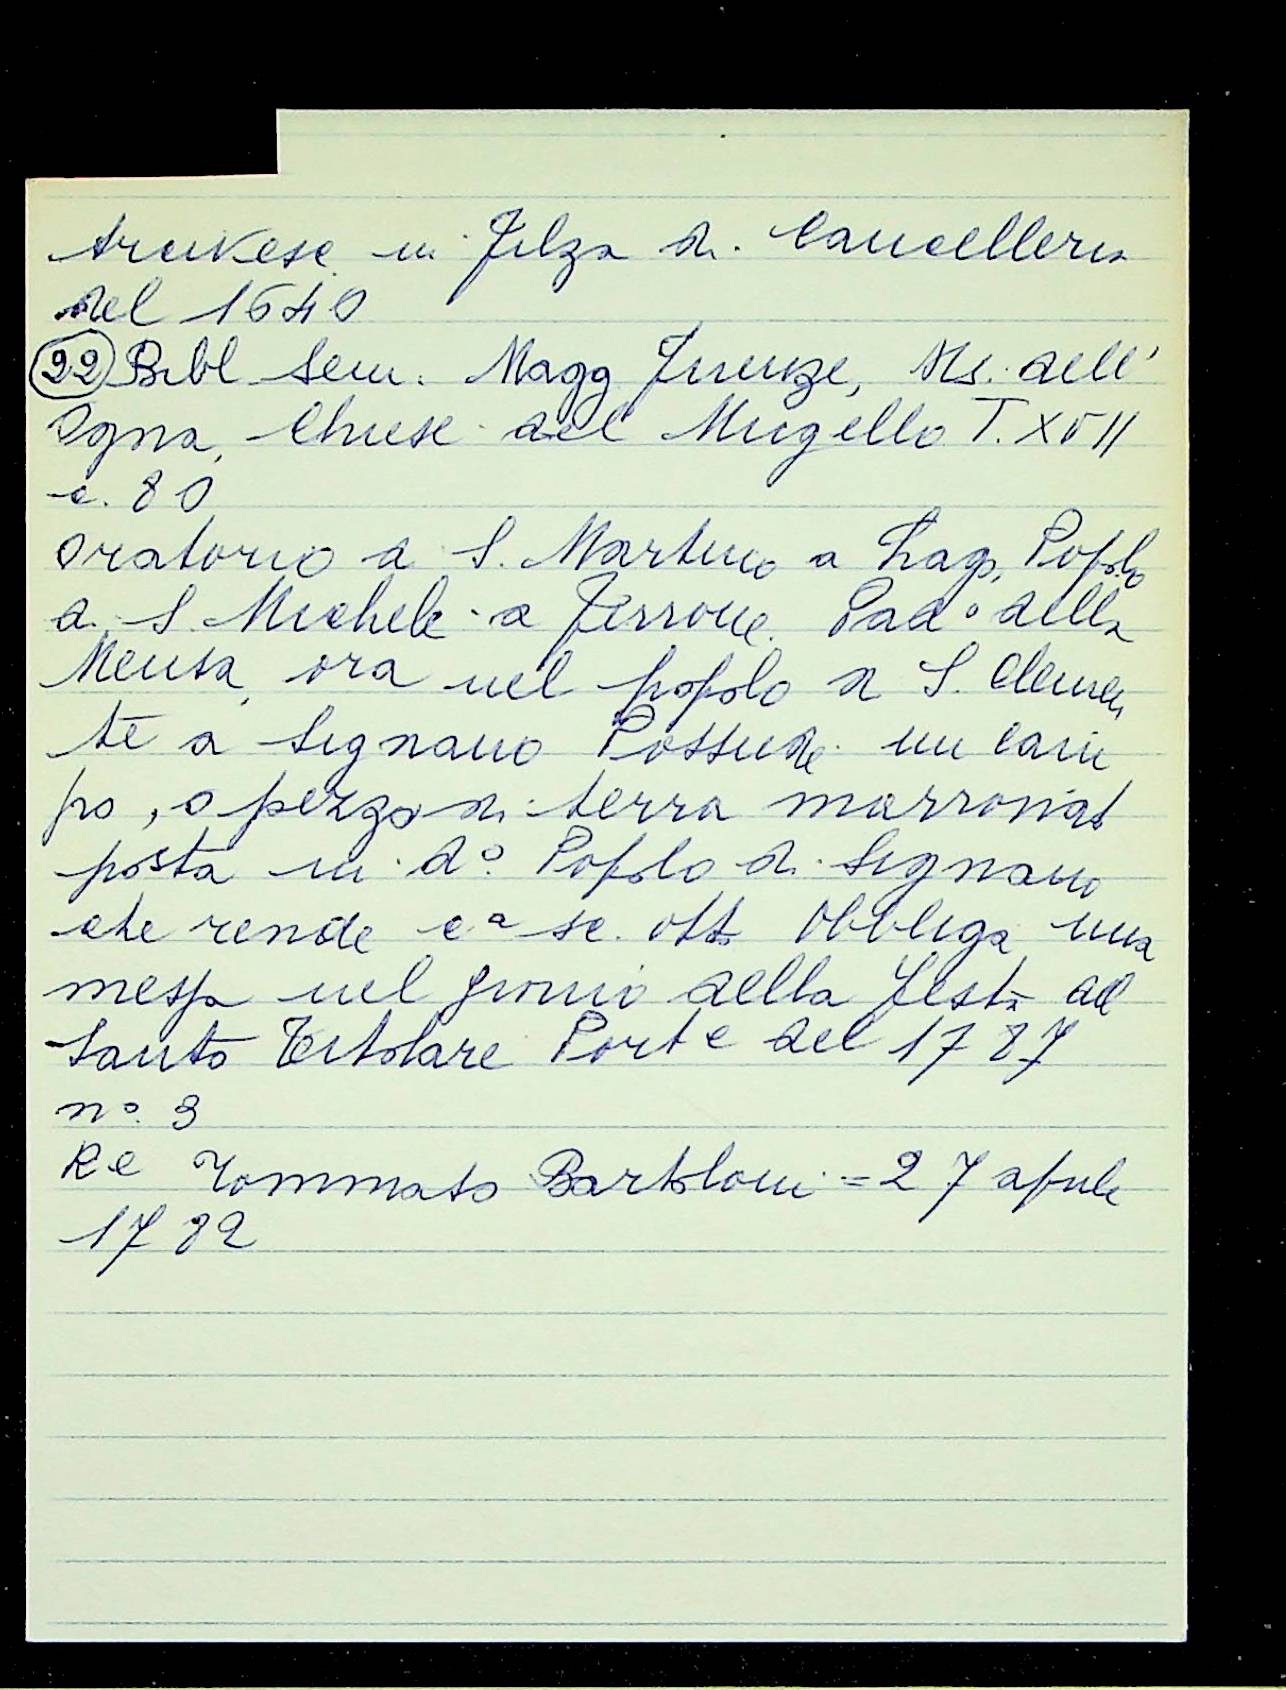 Arcivesc. in Filza di Cancelleria
del 1640
(22) Bibl Sem. Magg Firenze, Ms. dell'
Ogna, Chiese del Mugello T. XVII
c. 80
Oratorio di S. Martino a Lago, Popolo
di S. Michele a Ferrone. Pad.º della
Mensa, ora nel popolo di S. Clemen
te a Signano Possiede un cam
po, o pezzo di terra marronat
posta in dº. Popolo di Signano
che rende cª sc. otto Obbliga una
messa nel giorno della Festa del
Santo Titolare Porte del 1787
nº. 3
Re Tommaso Bartoloni = 27 aprile
1782